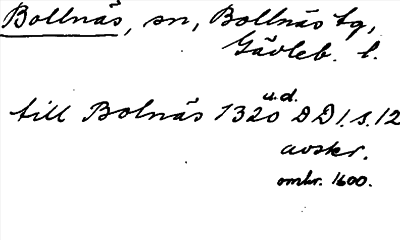 Bollnäs, sn, Bollnäs tg,
Gävleb. l.
u.d.
till Bolnäs 1320 DD 1. s. 12
avskr.
omkr. 1600.